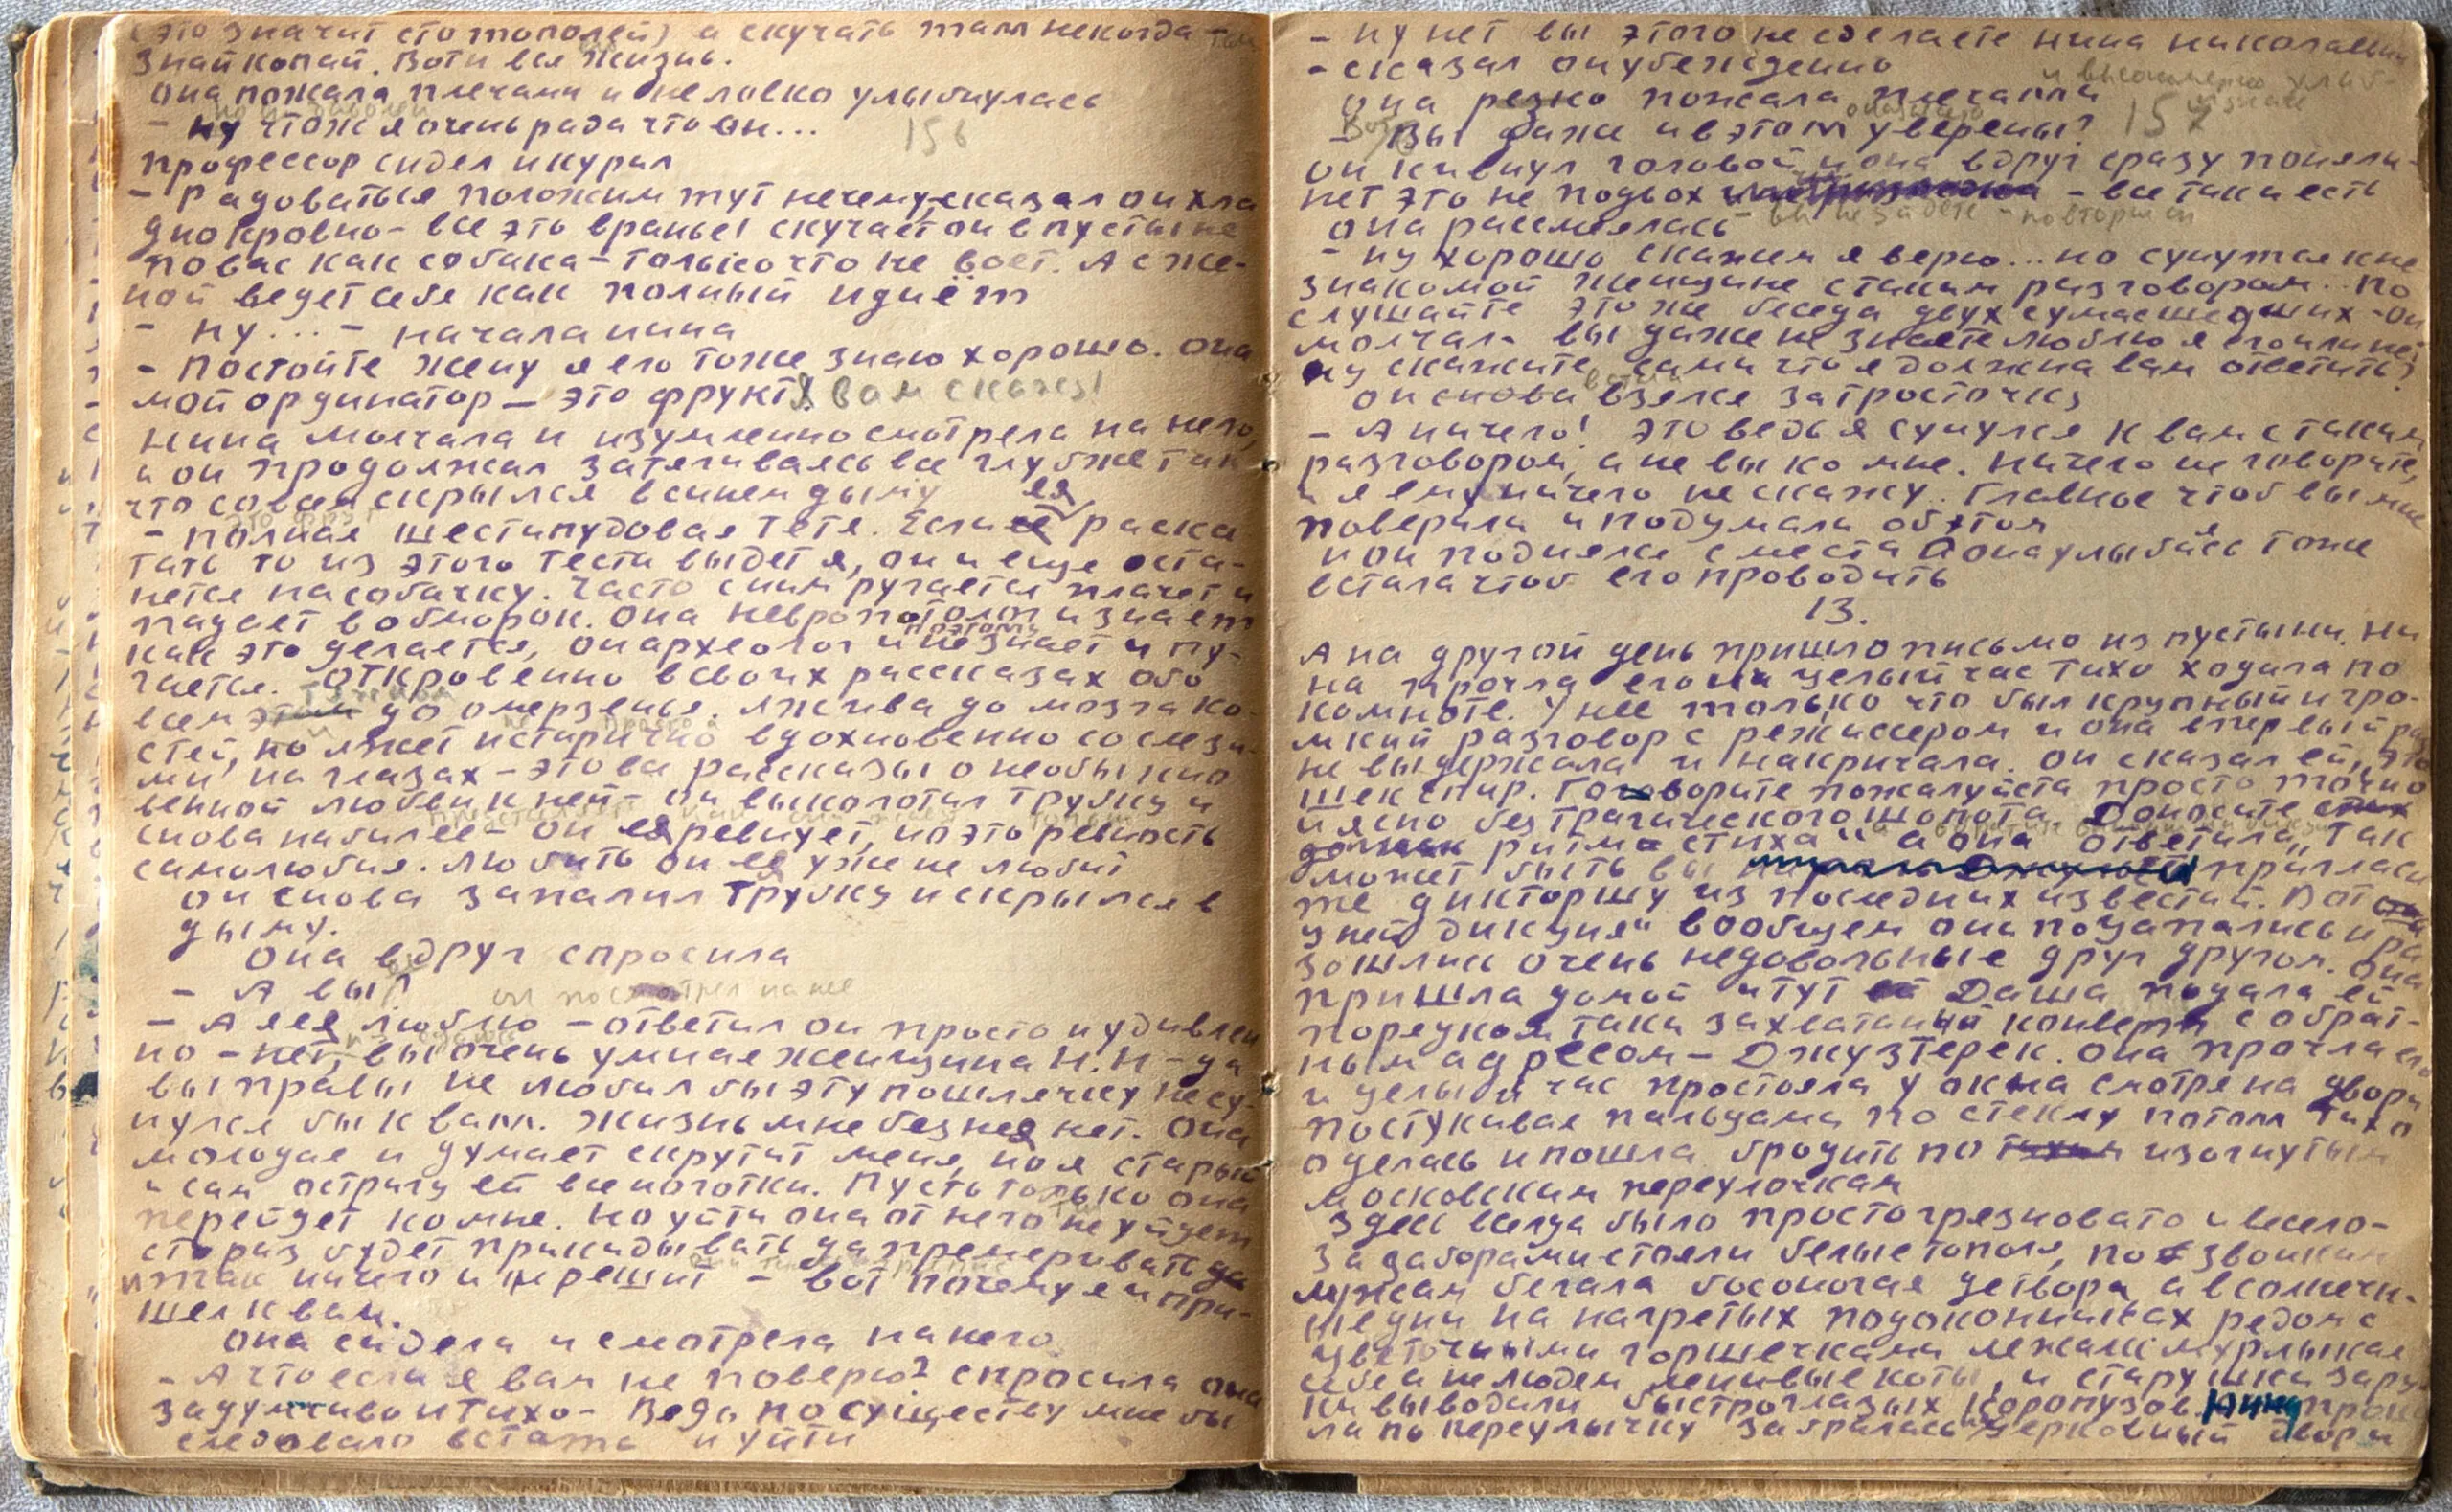 (это значит сто тополей) а скучать там некогда -
знай копай. Вот и вся жизнь.
она пожала плечами и неловко улыбнулась
- ну что ж я очень рада что он...
156
профессор сидел и курил
- Радоваться положим тут нечему, сказал он хла
днокровно - все это вранье! скучает он в пустыне
по вас как собака - только что не воет. А с же-
ной ведет себя как полный идиёт
- ну... - начала нина
- Постойте жену я его тоже знаю хорошо. она
мой ординатор - это фрукт! Я вам скажу!
нина молчала и изумленно смотрела на него,
и он продолжал затягиваясь все глубже так
что совсем скрылся в синем дыму
- полная шестипудовая тетя. Если ея раска
тать то из этого теста выдет я, он и еще оста-
нется на собачку. Часто с ним ругается плачет и
падает в обморок. Она невропатолог и знает
как это делается, он археолог и поэтому не знает и пу-
гается. Откровенна в своих рассказах обо
всем этом до омерзенья. лжива до мозга ко-
стей, но лжет истирично вдохновенно со слеза-
ми на глазах - это все рассказы о необыкно
венной любви к ней - он выколотил трубку и
снова набил ее - он ея ревнует, но это ревность
самолюбия. любить он ея уже не любит
он снова запалил трубку и скрылся в
дыму.
Она вдруг спросила
- А вы?
он посмотрел на нее
- А я ея люблю - ответил он просто и удивлен
но - нет, вы очень умная женщина Н.Н - да
вы правы не любил бы эту пошлячку не су-
нулся бы к вам. Жизнь мне без нея нет. Она
молодая и думает скрутит меня, но я старый
и сам остригу ей все ноготки. Пусть только она
перейдет ко мне. Но уйти она от него не уйдет
сто раз будет прикидывать да премеривать да
и так ничего и не решит - вот почему я и при-
шел к вам.
она сидела и смотрела на него
- А что если я вам не поверю? спросила она
задумчиво и тихо - Ведь по существу мне бы
следовало встать и уйти
- ну нет вы этого не сделаете нина николаевна
- сказал он убежденно
она резко пожала плечами
157
- Вы даже и в этом уверены?
он кивнул головой и она вдруг сразу поняла-
нет это не подвох - все так и есть
она рассмеялась - вы не уйдете - повторил он
- ну хорошо скажем я верю... но сунуться к не
знакомой женщине с таким разговором.. По
слушайте это же беседа двух сумасшедших - он
молчал - вы даже не знаете люблю я его или нет
ну скажите сами что я должна вам ответить?
он снова взялся за тросточку
- А ничего! это ведь я сунулся к вам с таким
разговором, а не вы ко мне. Ничего не говорите,
и я ему ничего не скажу. Главное чтоб вы мне
поверили и подумали об этом
и он поднялся с места а она улыбаясь тоже
встала чтоб его проводить
13.
А на другой день пришло письмо из пустыни. Ни
на прочла его и целый час тихо ходила по
комноте. У нее только что был крупный и гро-
мкий разговор с режиссером и она впервый раз
не выдержала и накричала. он сказал ей, "это
шекспир. Говорите пожалуйста просто точно
и ясно без трагического шопота. Доносите
ритма стиха" а она ответила, "так
может быть вы пригласи
те дикторшу из последних известий. Вот
у ней дикция" вообщем они поцапались и ра
зошлись очень недовольные друг другом. она
пришла домой и тут Даша подала ей
порядком таки захватаный конверт с обрат-
ным адресом - Джузтерек. Она прочла его
и целый час простояла у окна смотря на двор и
постукивая пальцами по стеклу потом тихо
оделась и пошла бродить по изогнутым
московским переулочкам
Здесь всегда было просто грязновато и весело-
За заборами стояли белые тополя, по звонким
лужам бегала босоногая детвора, а в солнечн-
ые дни на нагретых подоконниках рядом с
цветочными горшечками лежали мурлыкая
себе а не людям ленивые коты, и старушки за ру
ки выводили быстроглазых коропузов. Нина прош
ла по переулычку забралась в церковный двор и